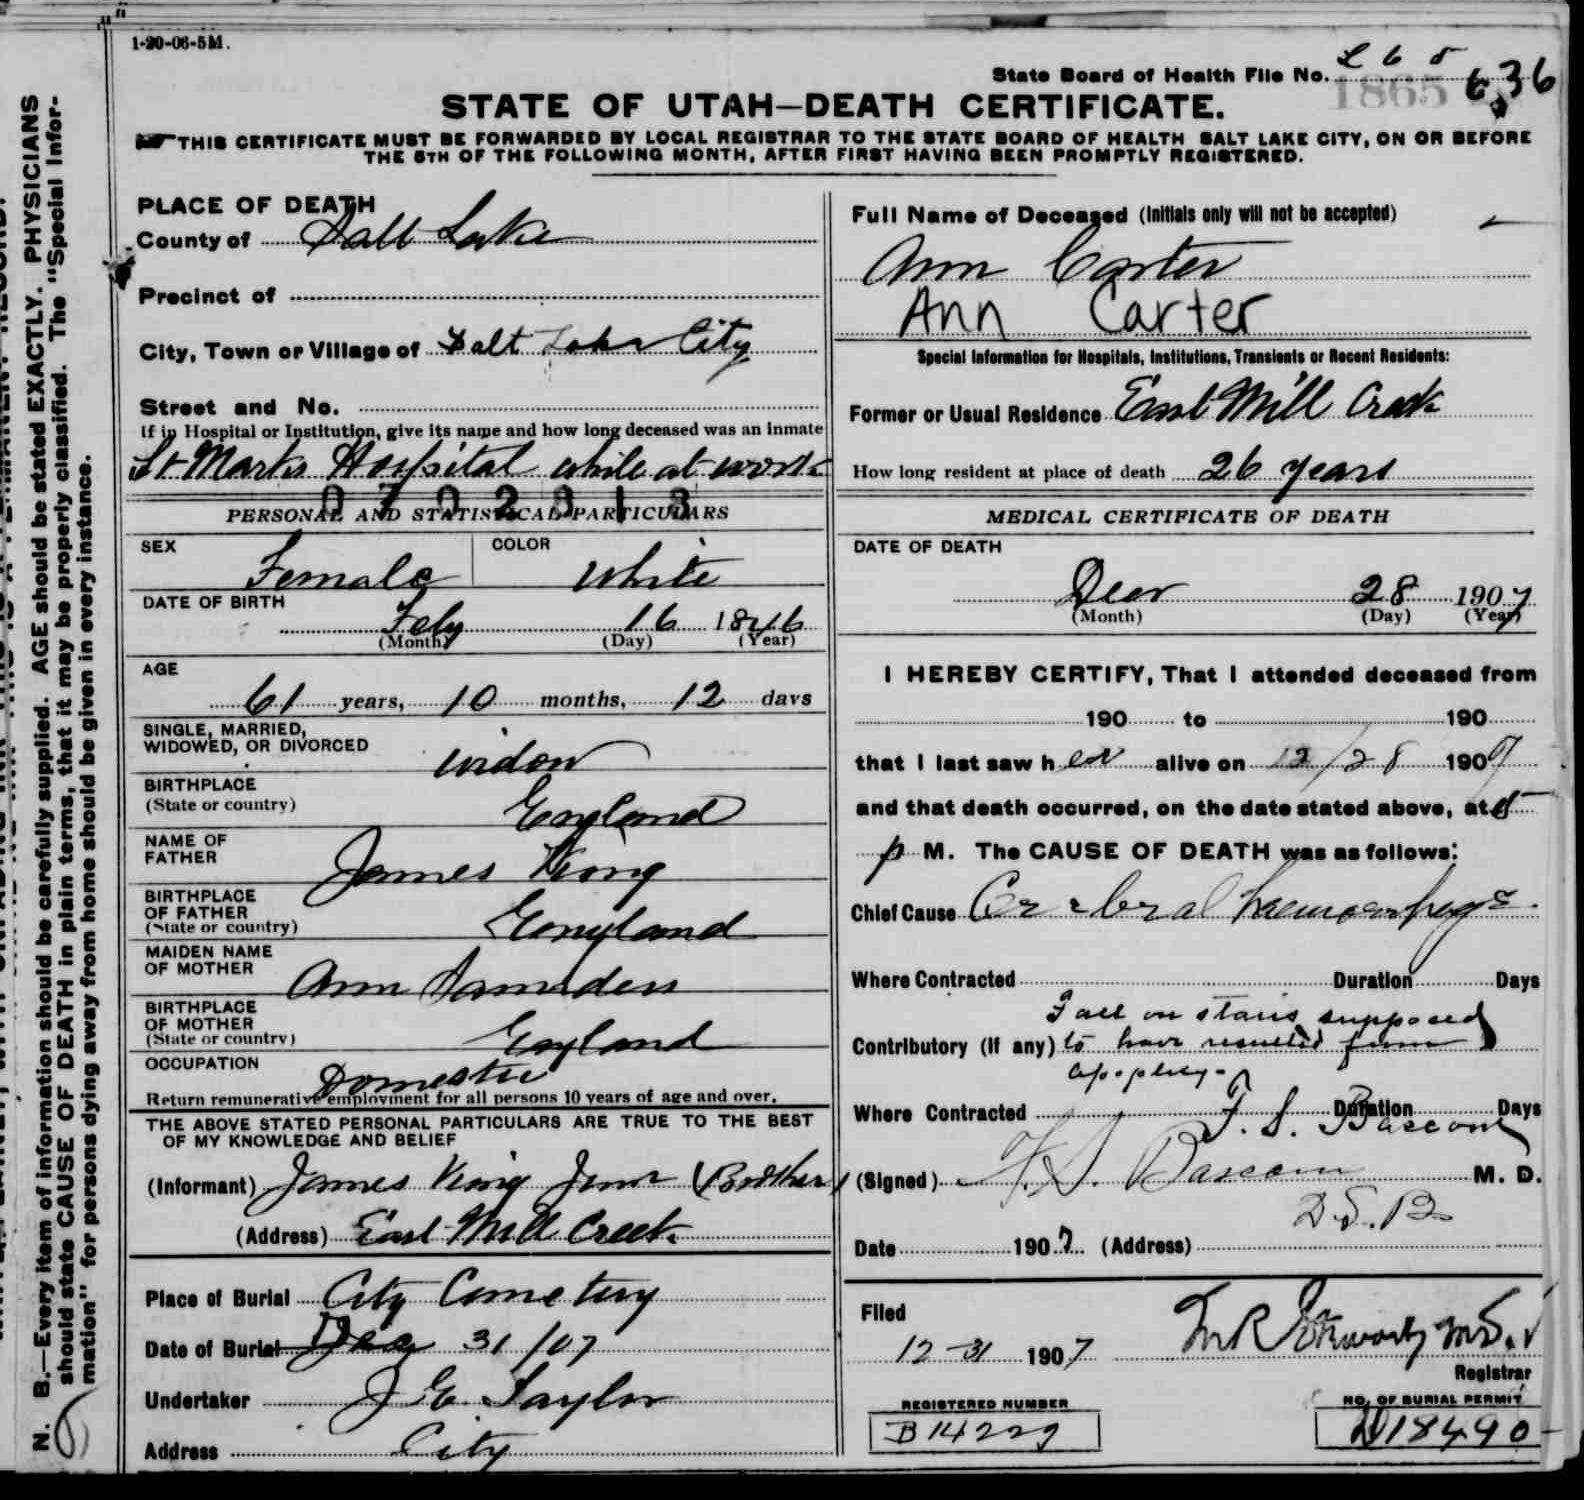 1-20-06-5M.
State Board of Health File No. 1865 636
STATE OF UTAH—DEATH CERTIFICATE.
THIS CERTIFICATE MUST BE FORWARDED BY LOCAL REGISTRAR TO THE STATE BOARD OF HEALTH SALT LAKE CITY, ON OR BEFORE
THE 5TH OF THE FOLLOWING MONTH, AFTER FIRST HAVING BEEN PROMPTLY REGISTERED.
N. B.—Every item of information should be carefully supplied. AGE should be stated EXACTLY. PHYSICIANS
should state CAUSE OF DEATH in plain terms, that it may be properly classified. The "Special Infor-
mation" for persons dying away from home should be given in every instance.
PLACE OF DEATH
County of Salt Lake
Precinct of
City, Town or Village of Salt Lake City
Street and No.
If in Hospital or Institution, give its name and how long deceased was an inmate
St Marks Hospital while at work
PERSONAL AND STATISTICAL PARTICULARS
SEX Female COLOR White
DATE OF BIRTH
Feby 16 1846
(Month) (Day) (Year)
AGE
61 years, 10 months, 12 days
SINGLE, MARRIED,
WIDOWED, OR DIVORCED widow
BIRTHPLACE
(State or country) England
NAME OF
FATHER James King
BIRTHPLACE
OF FATHER
(State or country) England
MAIDEN NAME
OF MOTHER Ann Saunders
BIRTHPLACE
OF MOTHER
(State or country) England
OCCUPATION Domestic
Return remunerative employment for all persons 10 years of age and over.
THE ABOVE STATED PERSONAL PARTICULARS ARE TRUE TO THE BEST
OF MY KNOWLEDGE AND BELIEF
(Informant) James King Junr (Brother)
(Address) East Mill Creek
Place of Burial City Cemetery
Date of Burial Dec 31/07
Undertaker J E Taylor
Address City
Full Name of Deceased (Initials only will not be accepted)
Ann Carter
Ann Carter
Special Information for Hospitals, Institutions, Transients or Recent Residents:
Former or Usual Residence East Mill Creek
How long resident at place of death 26 years
MEDICAL CERTIFICATE OF DEATH
DATE OF DEATH
Decr 28 1907
(Month) (Day) (Year)
I HEREBY CERTIFY, That I attended deceased from
190 to 190
that I last saw her alive on 12/28 1907
and that death occurred, on the date stated above, at 5
p M. The CAUSE OF DEATH was as follows:
Chief Cause Cerebral haemorrhage.
Where Contracted Duration Days
Fall on stairs supposed
Contributory (If any) to have resulted from
apoplexy.
Where Contracted Duration Days
F. S. Bascom
(Signed) F. S. Bascom M. D.
D.S.B.
Date 1907 (Address)
Filed
12-31 1907
Registrar
REGISTERED NUMBER
B14229
NO. OF BURIAL PERMIT
D18490